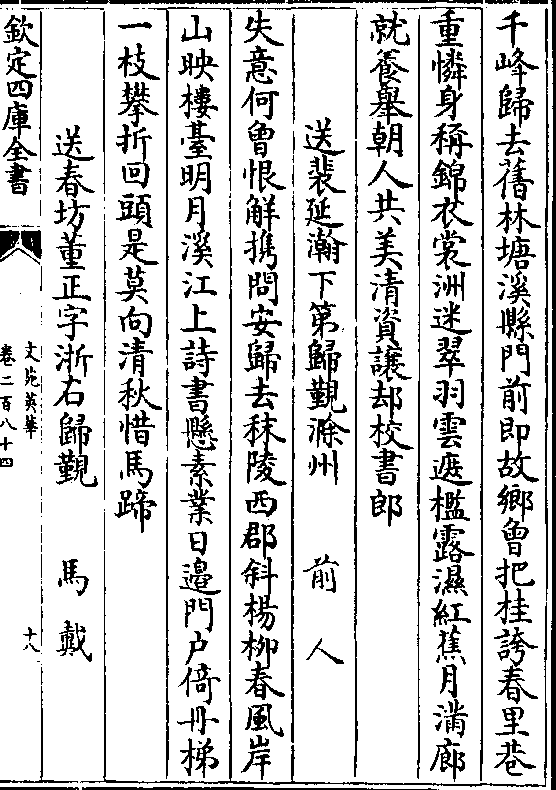 千峰歸去舊林塘溪縣門前即故鄉曾把桂誇春里巷
重憐身稱錦衣裳洲迷翠羽雲遮檻露濕紅蕉月滿廊
就養舉朝人共羙清資讓却校書郎
送裴延瀚下第歸覲滁州　前人
失意何曾恨解攜問安歸去秣陵西郡斜楊栁春風岸
山映樓臺明月溪江上詩書懸素業日邉門户倚丹梯
一枝攀折回頭是莫向清秋惜馬蹄
送春坊董正字浙右歸覲　馬戴
欽定四庫全書
文苑英華
卷二百八十四
十八